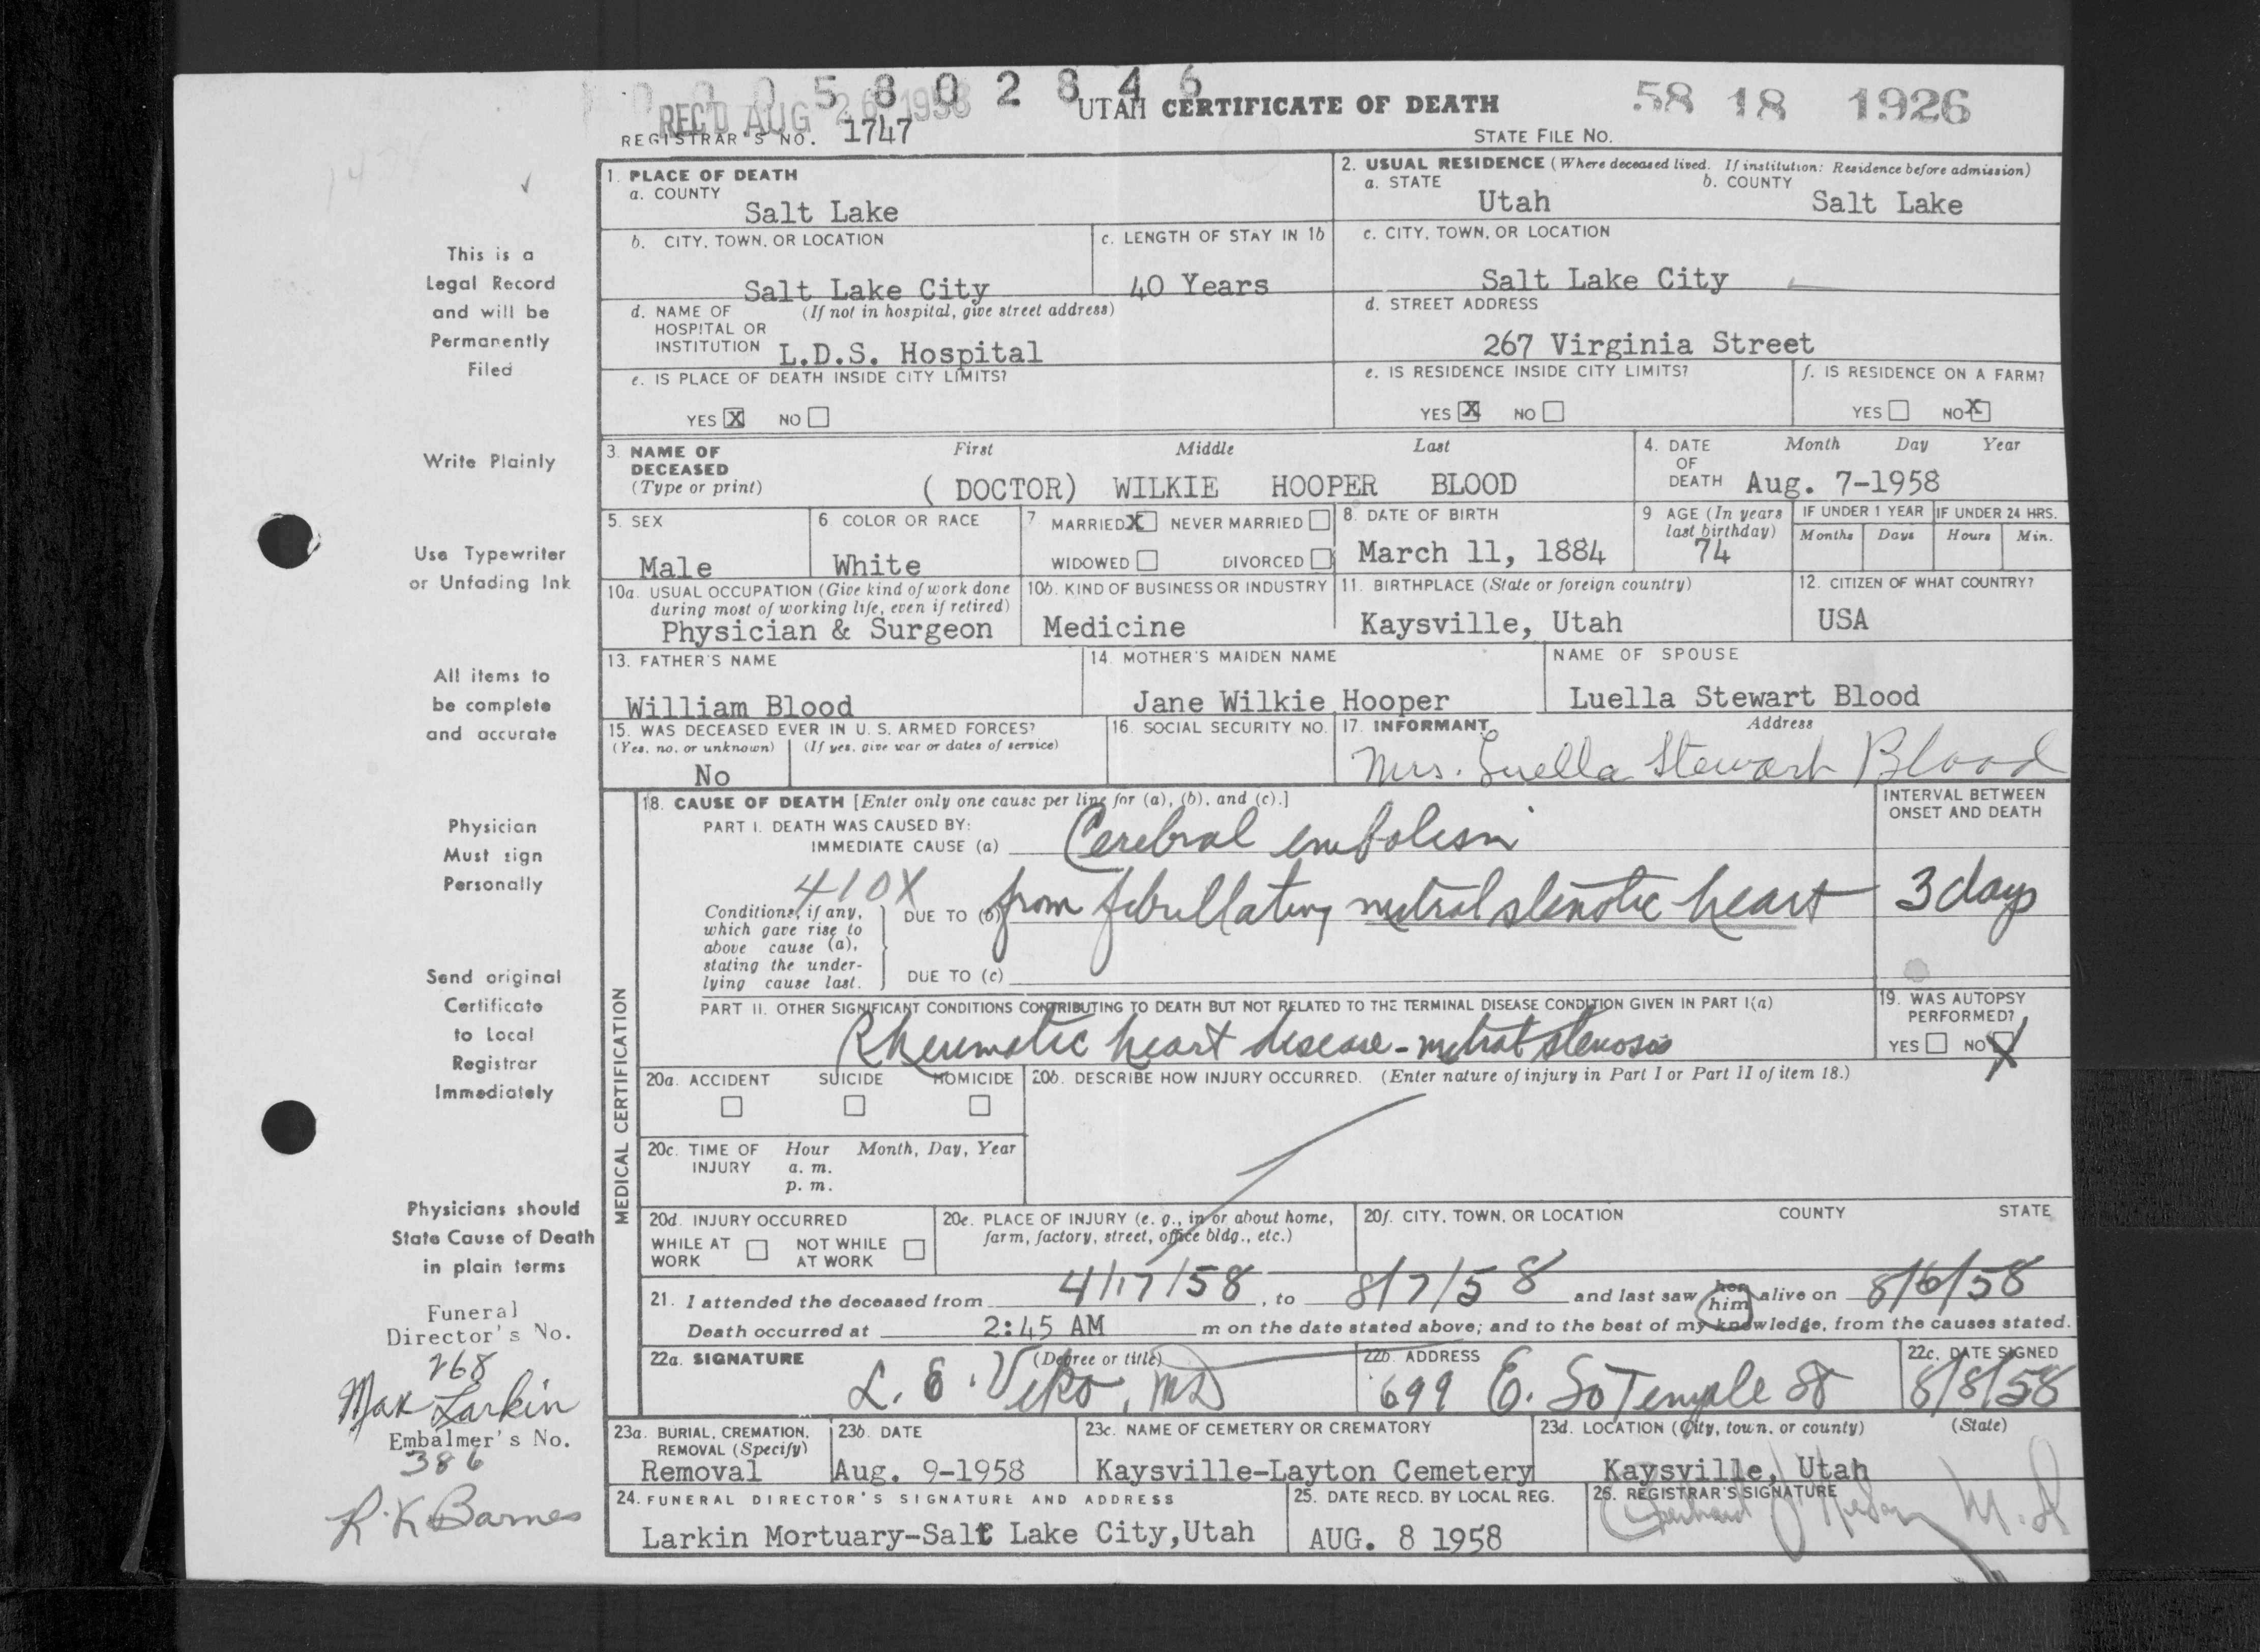 0 0 0 5 8 0 2 8 4 6
REC'D AUG 26 1958
UTAH CERTIFICATE OF DEATH
58 18 1926
REGISTRAR'S NO. 1747
STATE FILE NO.
This is a
Legal Record
and will be
Permanently
Filed
Write Plainly
Use Typewriter
or Unfading Ink
All items to
be complete
and accurate
Physician
Must sign
Personally
Send original
Certificate
to Local
Registrar
Immediately
Physicians should
State Cause of Death
in plain terms
Funeral
Director's No.
268
Max Larkin
Embalmer's No.
386
R. K Barnes
1. PLACE OF DEATH
a. COUNTY
Salt Lake
2. USUAL RESIDENCE (Where deceased lived. If institution: Residence before admission)
a. STATE b. COUNTY
Utah Salt Lake
b. CITY, TOWN, OR LOCATION
Salt Lake City
c. LENGTH OF STAY IN 1b
40 Years
c. CITY, TOWN, OR LOCATION
Salt Lake City
d. NAME OF (If not in hospital, give street address)
HOSPITAL OR
INSTITUTION L.D.S. Hospital
d. STREET ADDRESS
267 Virginia Street
e. IS PLACE OF DEATH INSIDE CITY LIMITS?
YES X NO
e. IS RESIDENCE INSIDE CITY LIMITS?
YES X NO
f. IS RESIDENCE ON A FARM?
YES NO X
3. NAME OF First Middle Last
DECEASED
(Type or print) ( DOCTOR) WILKIE HOOPER BLOOD
4. DATE Month Day Year
OF
DEATH Aug. 7-1958
5. SEX
Male
6. COLOR OR RACE
White
7. MARRIED X NEVER MARRIED
WIDOWED DIVORCED
8. DATE OF BIRTH
March 11, 1884
9. AGE (In years
last birthday)
74
IF UNDER 1 YEAR IF UNDER 24 HRS.
Months Days Hours Min.
10a. USUAL OCCUPATION (Give kind of work done
during most of working life, even if retired)
Physician & Surgeon
10b. KIND OF BUSINESS OR INDUSTRY
Medicine
11. BIRTHPLACE (State or foreign country)
Kaysville, Utah
12. CITIZEN OF WHAT COUNTRY?
USA
13. FATHER'S NAME
William Blood
14. MOTHER'S MAIDEN NAME
Jane Wilkie Hooper
NAME OF SPOUSE
Luella Stewart Blood
15. WAS DECEASED EVER IN U. S. ARMED FORCES?
(Yes, no, or unknown) (If yes, give war or dates of service)
No
16. SOCIAL SECURITY NO.
17. INFORMANT Address
Mrs. Luella Stewart Blood
MEDICAL CERTIFICATION
18. CAUSE OF DEATH [Enter only one cause per line for (a), (b), and (c).]
PART I. DEATH WAS CAUSED BY:
IMMEDIATE CAUSE (a) Cerebral embolism
INTERVAL BETWEEN
ONSET AND DEATH
410X
Conditions, if any,
which gave rise to
above cause (a),
stating the under-
lying cause last.
DUE TO (b) from fibrillating mitral stenotic heart
3 days
DUE TO (c)
PART II. OTHER SIGNIFICANT CONDITIONS CONTRIBUTING TO DEATH BUT NOT RELATED TO THE TERMINAL DISEASE CONDITION GIVEN IN PART I(a)
Rheumatic heart disease - mitral stenosis
19. WAS AUTOPSY
PERFORMED?
YES NO X
20a. ACCIDENT SUICIDE HOMICIDE
20b. DESCRIBE HOW INJURY OCCURRED. (Enter nature of injury in Part I or Part II of item 18.)
20c. TIME OF Hour Month, Day, Year
INJURY a. m.
p. m.
20d. INJURY OCCURRED
WHILE AT NOT WHILE
WORK AT WORK
20e. PLACE OF INJURY (e. g., in or about home,
farm, factory, street, office bldg., etc.)
20f. CITY, TOWN, OR LOCATION COUNTY STATE
21. I attended the deceased from 4/17/58, to 8/7/58 and last saw her him alive on 8/6/58
Death occurred at 2:45 AM m on the date stated above; and to the best of my knowledge, from the causes stated.
22a. SIGNATURE (Degree or title)
L. E. Viko, MD
22b. ADDRESS
699 E. So Temple St
22c. DATE SIGNED
8/8/58
23a. BURIAL, CREMATION,
REMOVAL (Specify)
Removal
23b. DATE
Aug. 9-1958
23c. NAME OF CEMETERY OR CREMATORY
Kaysville-Layton Cemetery
23d. LOCATION (City, town, or county) (State)
Kaysville, Utah
24. FUNERAL DIRECTOR'S SIGNATURE AND ADDRESS
Larkin Mortuary-Salt Lake City, Utah
25. DATE RECD. BY LOCAL REG.
AUG. 8 1958
26. REGISTRAR'S SIGNATURE
M. D